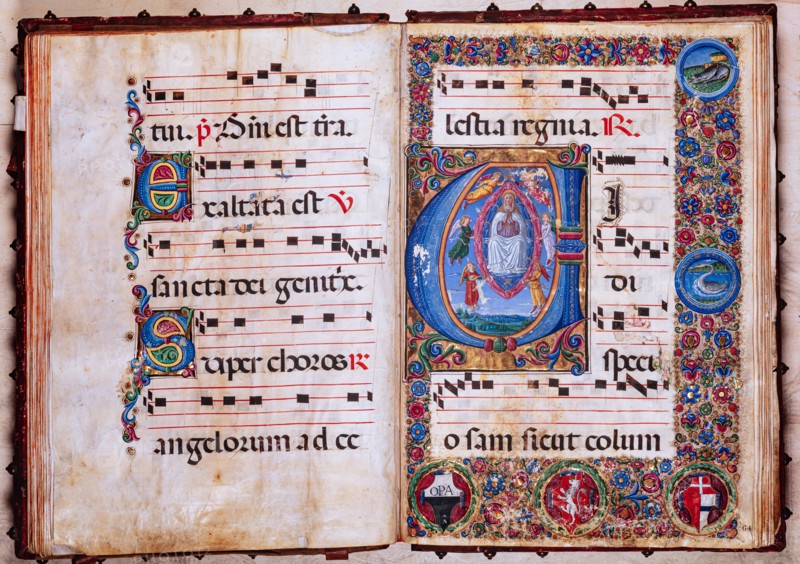 tui. ℣ Dñi est tr̃a.
Exaltata est ℣
sancta dei genit̃x.
Super choros ℟
angelorum ad ce
lestia regnia. ℟.
VI
di
speci
osam sicut colum
OPA
64